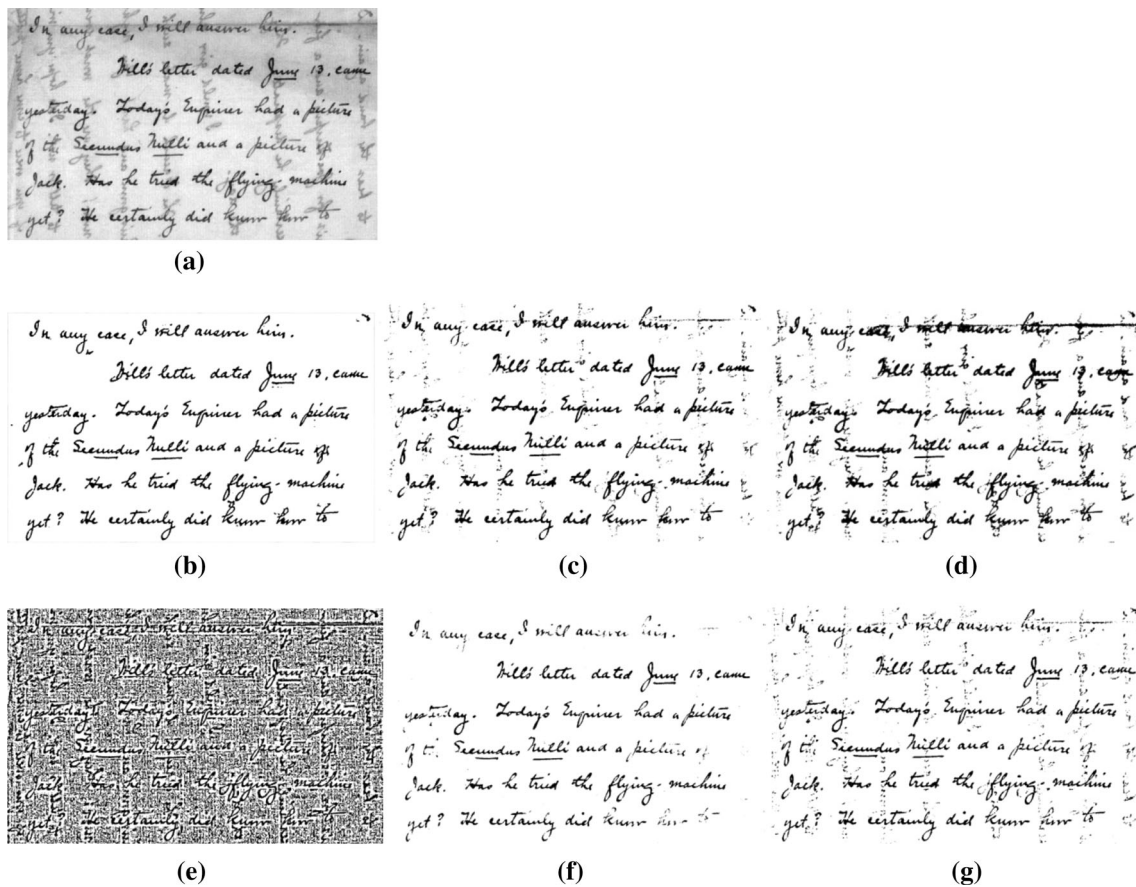 In any case, I will answer him.
Will's letter dated June 13, came
yesterday. Today's Enquirer had a picture
of the Secundus Nulli and a picture of
Jack. Has he tried the flying-machine
yet? He certainly did know how to
(a)
In any case, I will answer him.
Will's letter dated June 13, came
yesterday. Today's Enquirer had a picture
of the Secundus Nulli and a picture of
Jack. Has he tried the flying-machine
yet? He certainly did know how to
(b)
In any case, I will answer him.
Will's letter dated June 13, came
yesterday. Today's Enquirer had a picture
of the Secundus Nulli and a picture of
Jack. Has he tried the flying-machine
yet? He certainly did know how to
(c)
In any case, I will answer him.
Will's letter dated June 13, came
yesterday. Today's Enquirer had a picture
of the Secundus Nulli and a picture of
Jack. Has he tried the flying-machine
yet? He certainly did know how to
(d)
In any case I will answer him
Will's letter dated June 13, came
yesterday. Today's Enquirer had a picture
of the Secundus Nulli and a picture of
Jack. Has he tried the flying machine
yet? He certainly did know how to
(e)
In any case, I will answer him.
Will's letter dated June 13, came
yesterday. Today's Enquirer had a picture
of the Secundus Nulli and a picture of
Jack. Has he tried the flying-machine
yet? He certainly did know how to
(f)
In any case, I will answer him.
Will's letter dated June 13, came
yesterday. Today's Enquirer had a picture
of the Secundus Nulli and a picture of
Jack. Has he tried the flying-machine
yet? He certainly did know how to
(g)